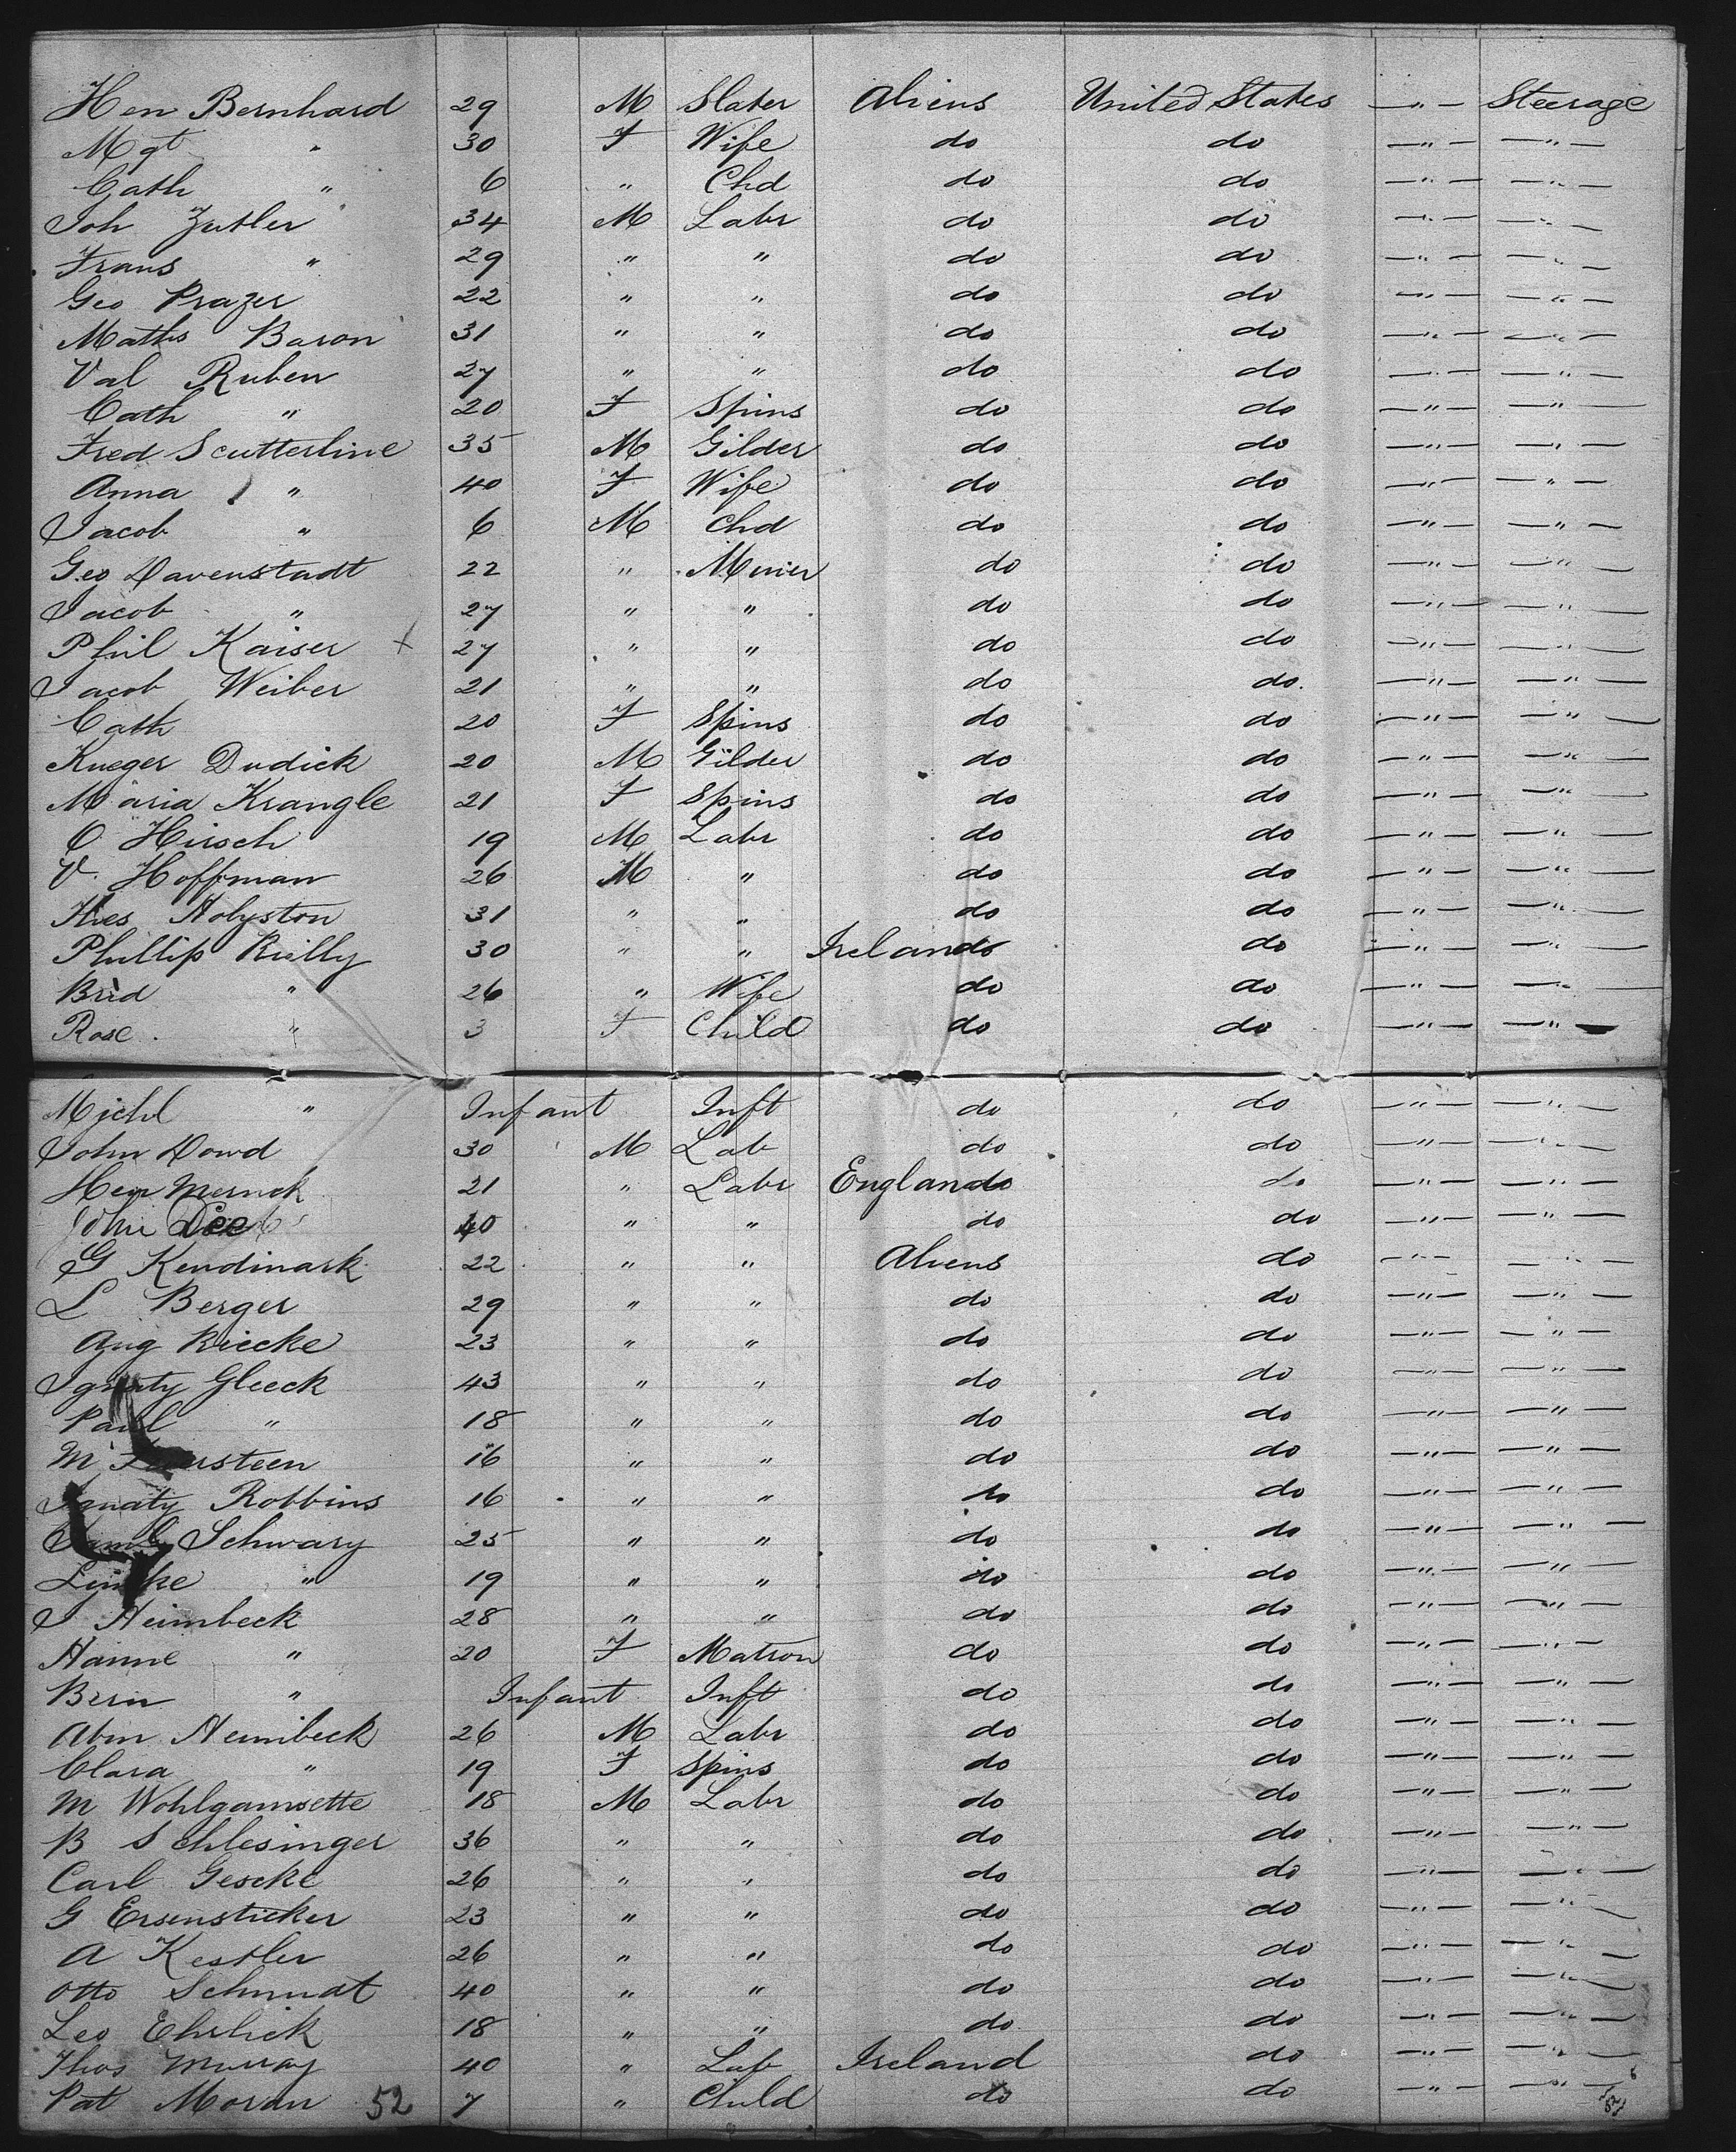 Hen Bernhard 29 M Slater Aliens United States — " — Steerage
Mgt " 30 F Wife do do — " — — " —
Cath " 6 " Chd do do — " — — " —
Joh Zutler 34 M Labr do do — " — — " —
Frans " 29 " " do do — " — — " —
Geo Prazer 22 " " do do — " — — " —
Maths Baron 31 " " do do — " — — " —
Val Ruben 27 " " do do — " — — " —
Cath " 20 F Spins do do — " — — " —
Fred Scutterline 35 M Gilder do do — " — — " —
Anna " 40 F Wife do do — " — — " —
Jacob " 6 M Chd do do — " — — " —
Geo Davenstadt 22 " Minier do do — " — — " —
Jacob " 27 " " do do — " — — " —
Phil Kaiser x 27 " " do do — " — — " —
Jacob Weiber 21 " " do do. — " — — " —
Cath 20 F Spins do do — " — — " —
Krueger Dudick 20 M Gilder do do — " — — " —
Maria Krangle 21 F Spins do do — " — — " —
C Hirsch 19 M Labr do do — " — — " —
V. Hoffman 26 M " do do — " — — " —
Holyston 31 " " do do — " — — " —
Phillip Reilly 30 " " Ireland do — " — — " —
Brid " 26 " Wife do do — " — — " —
Rose " 3 F Child do do — " — — " —
Michl " Infant Inft do do — " — — " —
John Dowd 30 M Lab do do — " — — " —
Hen Mernck 21 " Labr England do — " — — " —
John 40 " " do do — " — — " —
G Kendinark 22 " " Aliens do — " — — " —
L Berger 29 " " do do — " — — " —
Aug Riecke 23 " " do do — " — — " —
Ignaty Gleeck 43 " " do do — " — — " —
Paul " 18 " " do do — " — — " —
M 16 " " do do — " — — " —
Ignaty Robbins 16 " " do do — " — — " —
Schwary 25 " " do do — " — — " —
19 " " do do — " — — " —
J Heimbeck 28 " " do do — " — — " —
Hanne " 20 F Matron do do — " — — " —
Bern " Infant Inft do do — " — — " —
Abm Heimbeck 26 M Labr do do — " — — " —
Clara " 19 F Spins do do — " — — " —
M Wohlgamsette 18 M Labr do do — " — — " —
B Schlesinger 36 " " do do — " — — " —
Carl Gescke 26 " " do do — " — — " —
G Ersensticker 23 " " do do — " — — " —
A Kestler 26 " " do do — " — — " —
Otto Schmidt 40 " " do do — " — — " —
Leo Ehrlick 18 " " do do — " — — " —
Thos Murray 40 " Lab Ireland do — " — — " —
Pat Moran 52 7 " Child do do — " — — " —